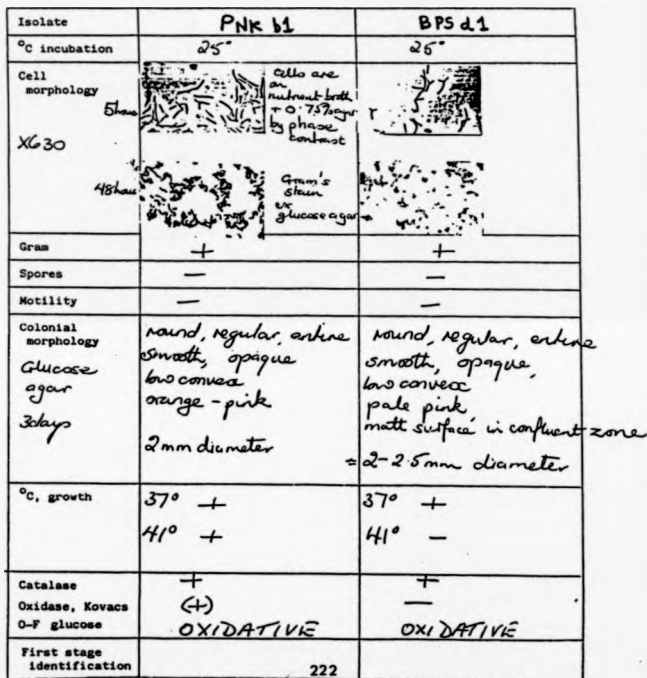 Isolate PNK b1 BPS d1
°C incubation 25° 25°
Cell
morphology
5 hours
X630
cells are
on
nutrient broth
+ 0.75% agar
by phase
contrast
48 hours
Gram's
stain
ex
glucose agar
Gram + +
Spores — —
Motility — —
Colonial
morphology
Glucose
agar
3 days
round, regular, entire
smooth, opaque
low convex
orange - pink
2 mm diameter
round, regular, entire
smooth, opaque,
low convex
pale pink
matt surface in confluent zone
= 2-2.5 mm diameter
°C, growth 37° + 37° +
41° + 41° —
Catalase + +
Oxidase, Kovacs (+) —
O-F glucose OXIDATIVE OXIDATIVE
First stage
identification
222